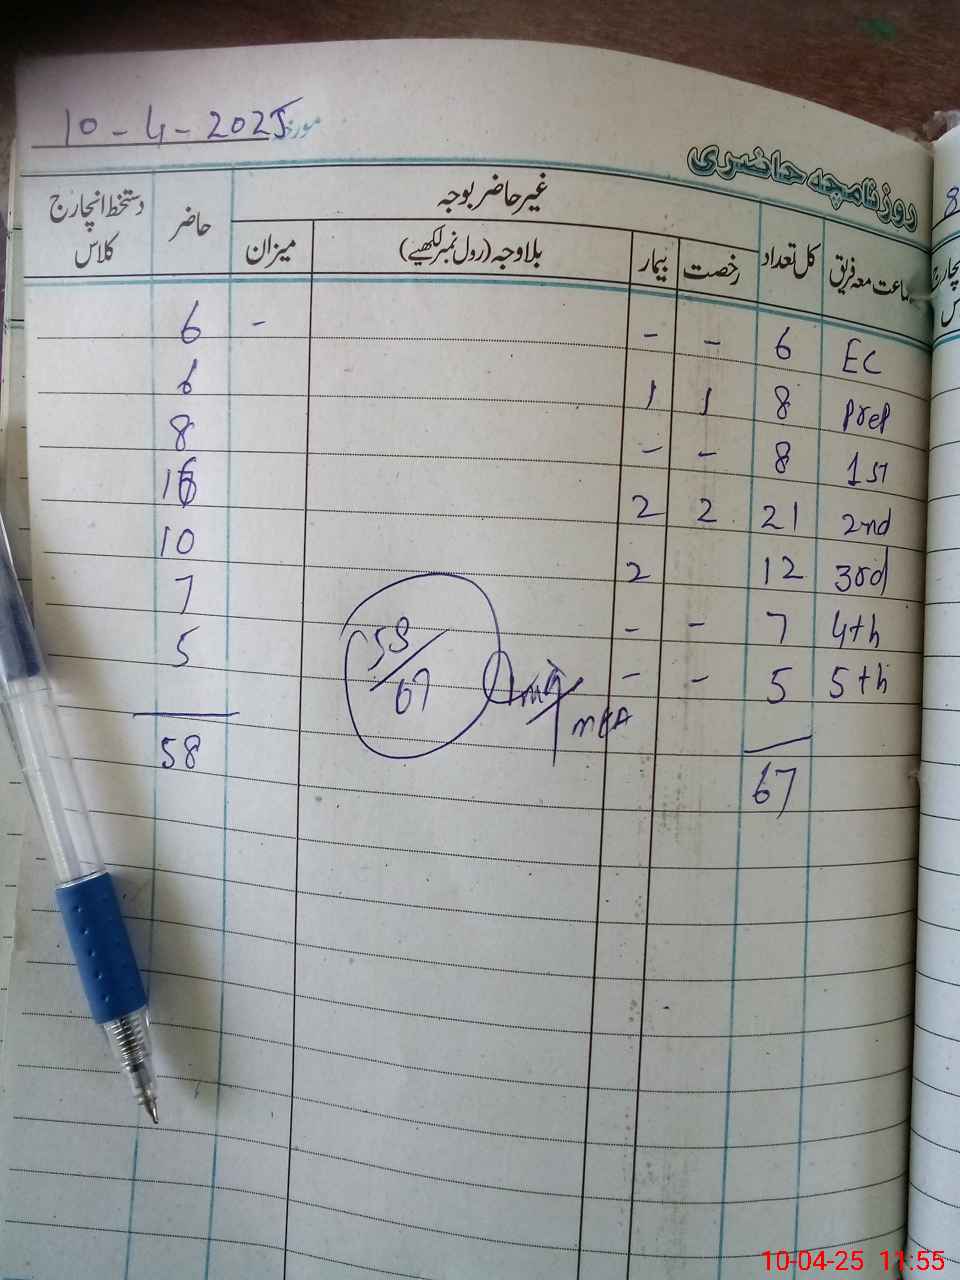 10-4-2025 مورخہ
روزنامچہ حاضری
جماعت معہ فریق کل تعداد غیر حاضر بوجہ حاضر دستخط انچارج کلاس
رخصت بیمار بلاوجہ (رول نمبر لکھیے) میزان
EC 6 - - - 6
Prep 8 1 1 6
1st 8 - - 8
2nd 21 2 2
3rd 12 2 10
4th 7 - - 7
5th 5 - - 5
67 58
58/67
10-04-25 11:55